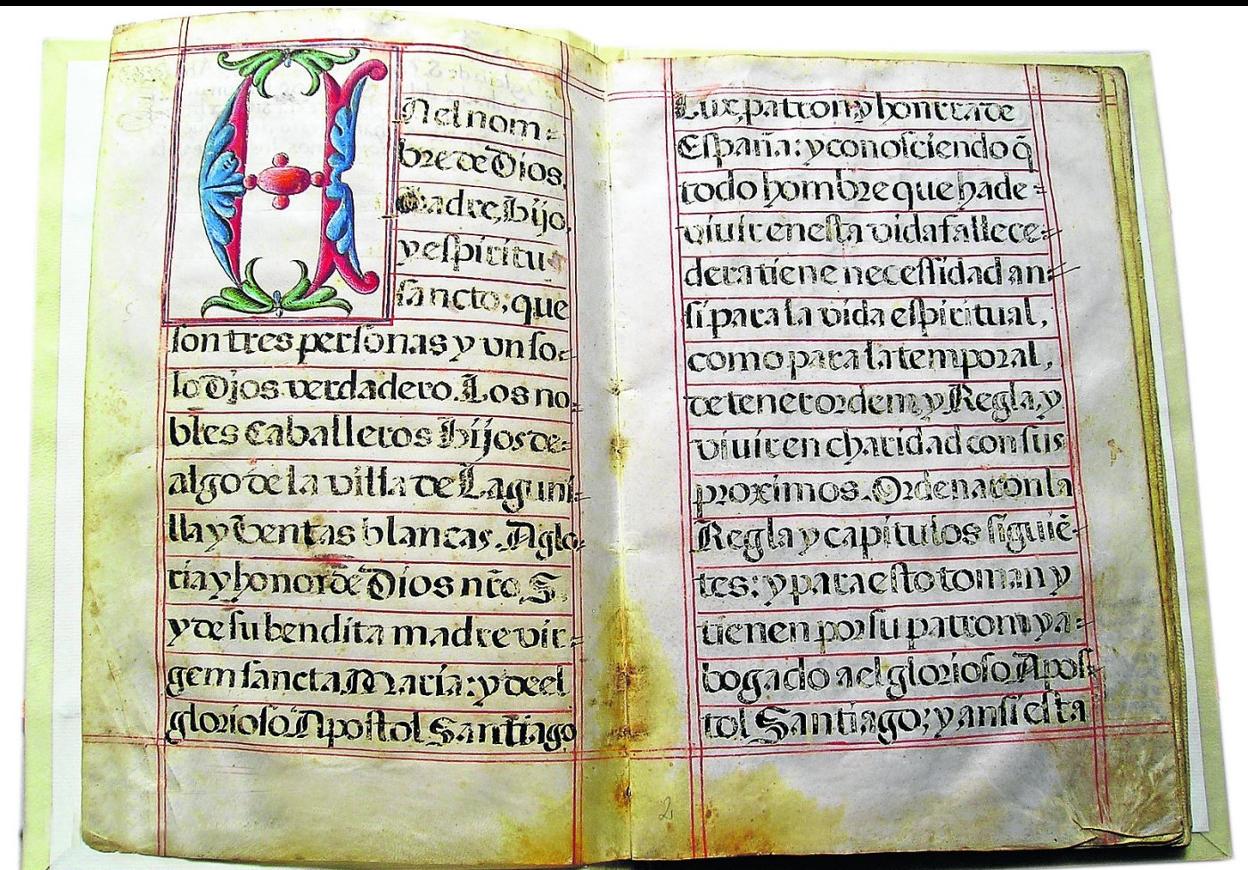 A
Nelnom=
bre de Dios,
Padre, hijo,
y eſpiritus
ſancto; que
ſon tres perſonas y un ſo=
lo Dios verdadero. Los no=
bles caballeros hijos de=
algo de la villa de Laguni=
lla y Ventas blancas. A glo=
ria y honor de Dios nr̃o, S.
y de ſu bendita madre vir=
gem ſancta Maria: y de el
glorioſo Apoſtol Santiago
Luz, patron, y honrra de
Eſpaña: y conoſciendo q̃
todo hombre que ha de=
viuir en eſta vida fallece=
dera tiene neceſſidad an=
ſi para la vida eſpiritual,
como para la temporal,
de tener ordem, y Regla, y
viuir en charidad con ſus
proximos. Ordenaron la
Regla y capitulos ſiguiẽ=
tes: y para eſto toman y
tienen por ſu patrom y a=
bogado a el glorioſo Apoſ=
tol Santiago; y anſi eſta
2